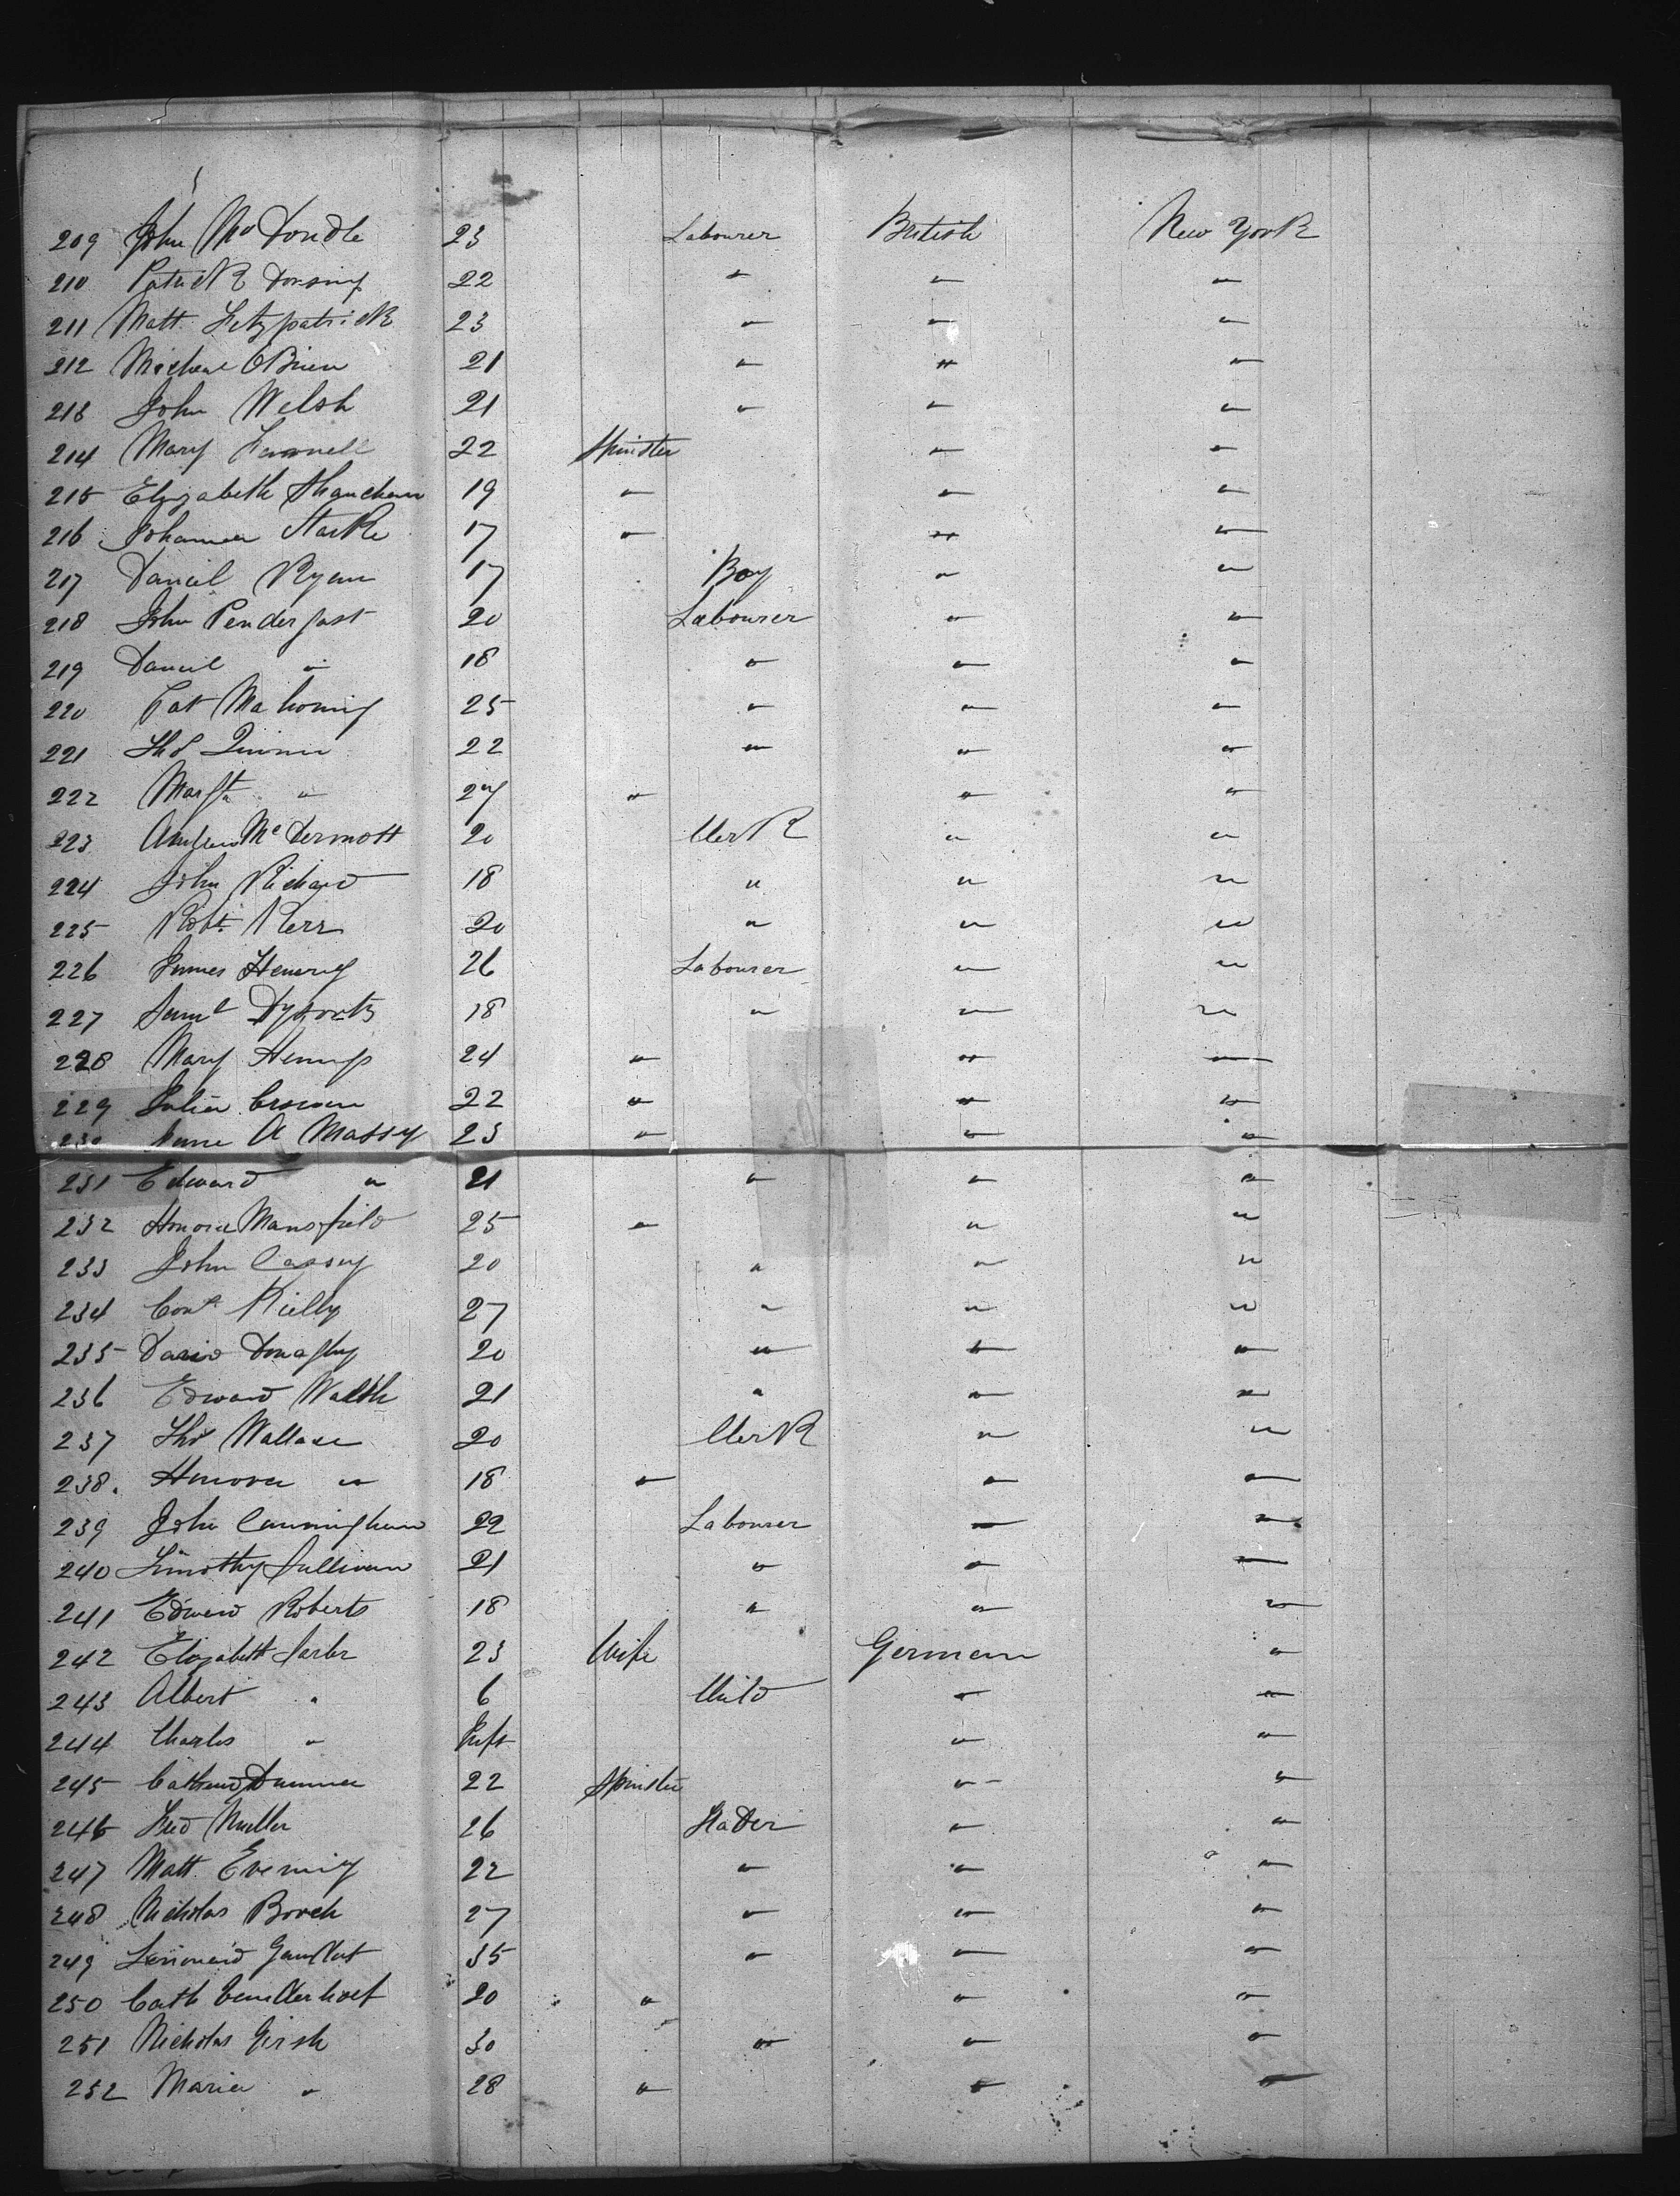 209 John Mc Dondle 23 Labourer British New York
210 Patrick 22 " " "
211 Matt. Fitzpatrick 23 " " "
212 Micheal O'Brien 21 " " "
213 John Welsh 21 " " "
214 Mary 22 Spinster " "
215 Elizabeth 19 " " "
216 Johanna Starke 17 " " "
217 Daniel Ryan 17 Boy " "
218 John Pendergast 20 Labourer " "
219 Daniel " 18 " " "
220 Pat Mahoning 25 " " "
221 Thos Quinn 22 " " "
222 Margt " 27 " " "
223 Andrew McDermott 20 Clerk " "
224 John Richard 18 " " "
225 Robt. Kerr 20 " " "
226 James Henery 26 Labourer " "
227 Saml 18 " " "
228 Mary 24 " " "
229 Julia 22 " " "
230 Jane A Massy 23 " " "
231 Edward " 21 " " "
232 Honora Mansfield 25 " " "
233 John Cassey 20 " " "
234 Kielly 27 " " "
235 David 20 " " "
236 Edward 21 " " "
237 Thos Wallace 20 Clerk " "
238. Honora " 18 " " "
239 John Cunningham 22 Labourer " "
240 Timothy Sullivan 21 " " "
241 Edward Roberts 18 " " "
242 Elizabeth 23 Wife German "
243 Albert " 6 Child " "
244 Charles " Inft " "
245 22 Spinster " "
246 Fred Muller 26 " "
247 Matt. 22 " " "
248 Nicholas 27 " " "
249 35 " " "
250 Cath 20 " " "
251 Nicholas Girsh 30 " " "
252 Maria " 28 " " "